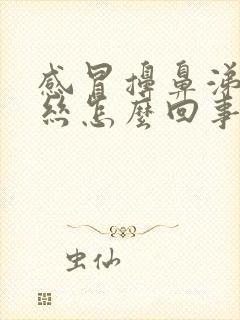 感冒擤鼻涕
丝怎麼回事
虫仙